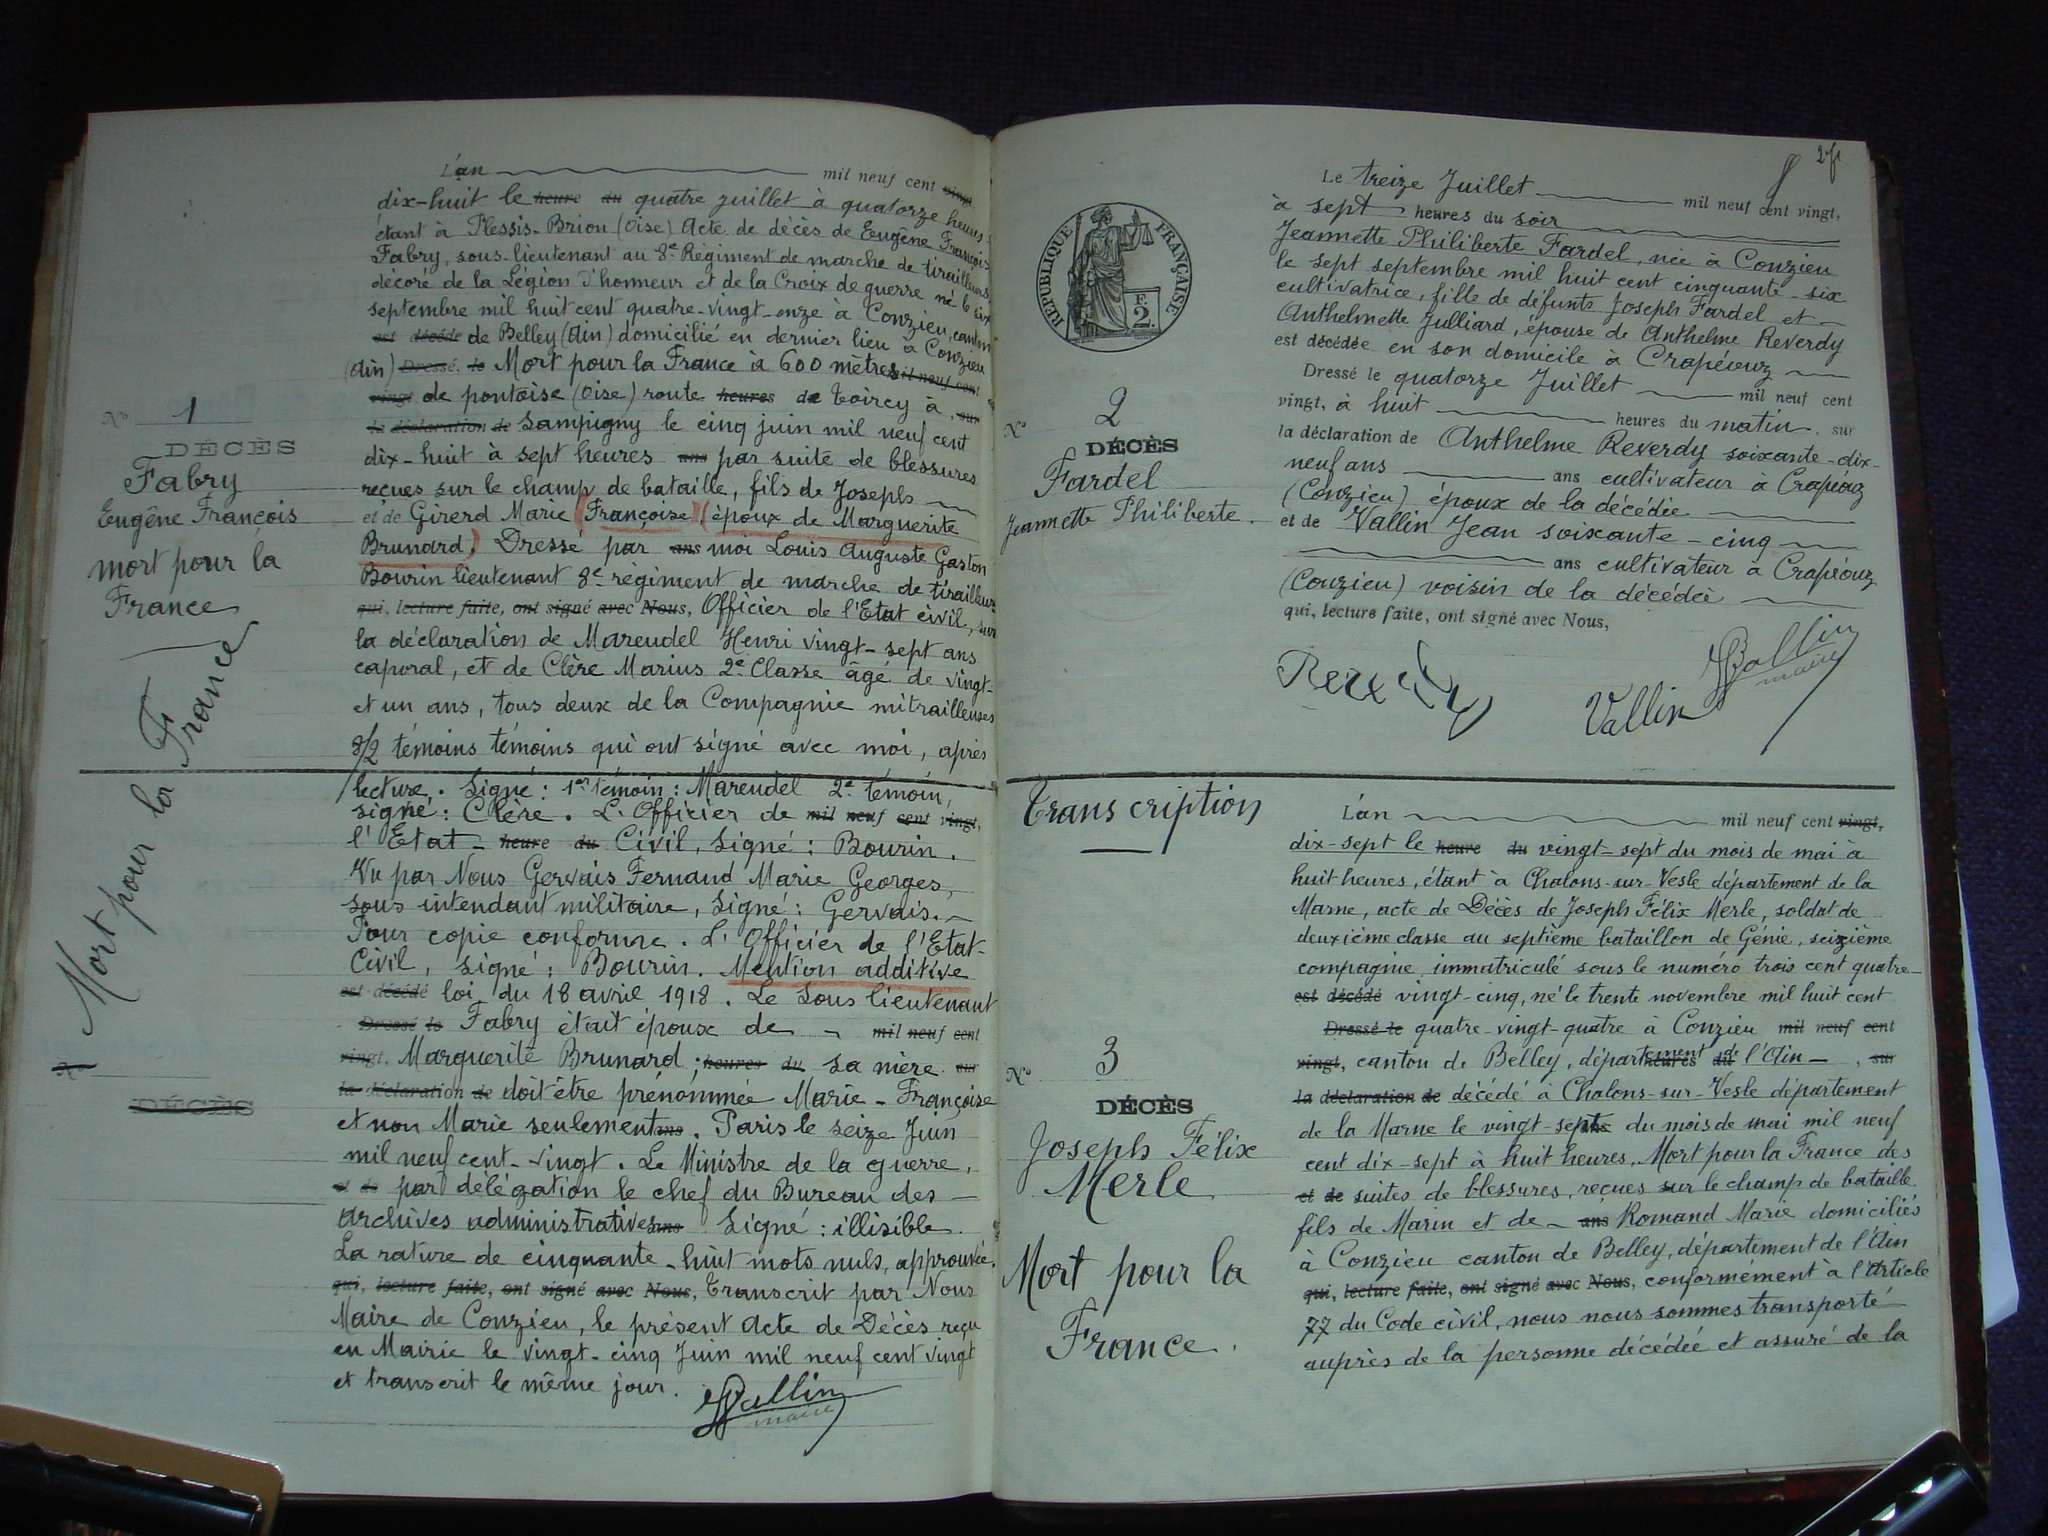 L'an mil neuf cent vingt
dix-huit le heure du quatre juillet à quatorze heures
étant à Plessis-Brion (Oise) Acte de décès de Eugène François
Fabry, sous-lieutenant au 8e Régiment de marche de tirailleurs,
décoré de la Légion d'honneur et de la Croix de guerre né le six
septembre mil huit cent quatre-vingt-onze à Conzieu, canton
est décédé de Belley (Ain) domicilié en dernier lieu à Conzieu
(Ain) Dressé le Mort pour la France à 600 mètres mil neuf cent
vingt de pontoise (Oise) route heures de à sur
la déclaration de Sampigny le cinq juin mil neuf cent
dix-huit à sept heures ans par suite de blessures
reçues sur le champ de bataille, fils de Joseph
et de Girerd Marie (Françoise) (époux de Marguerite
Brunard) Dressé par ans moi Louis Auguste Gaston
Bourin lieutenant 8e régiment de marche de tirailleurs
qui, lecture faite, ont signé avec Nous, Officier de l'Etat civil, sur
la déclaration de Mareudel Henri vingt-sept ans
caporal, et de Clère Marius 2e Classe âgé de vingt-
et un ans, tous deux de la Compagnie mitrailleuses
témoins témoins qui ont signé avec moi, après
lecture. Signé: 1er témoin: Mareudel 2e témoin,
signé: Clère. L'Officier de mil neuf cent vingt,
l'Etat heure du Civil, signé: Bourin.
Vu par Nous Gervais Fernand Marie Georges,
sous intendant militaire, signé: Gervais.
Pour copie conforme. L'Officier de l'Etat-
Civil, signé: Bourin. Mention additive
est décédé loi du 18 avril 1918. Le Sous lieutenant
Dressé le Fabry était époux de mil neuf cent
vingt, Marguerite Brunard; heures du sa mère sur
la déclaration de doit être prénommée Marie-Françoise
et non Marie seulement ans. Paris le seize Juin
mil neuf cent-vingt. Le Ministre de la guerre,
et de par délégation le chef du Bureau des
Archives administratives ans Signé: illisible.
La rature de cinquante-huit mots nuls, approuvée.
qui, lecture faite, ont signé avec Nous, Transcrit par Nous
Maire de Conzieu, le présent Acte de Décès reçu
en Mairie le vingt-cinq Juin mil neuf cent vingt
et transcrit le même jour.
Vallin
maire
No 1
DÉCÈS
Fabry
Eugène François
mort pour la
France
Mort pour la France
No
DÉCÈS
Le treize Juillet mil neuf cent vingt,
à sept heures du soir
Jeannette Philiberte Fardel, née à Conzieu
le sept septembre mil huit cent cinquante-six
cultivatrice, fille de défunts Joseph Fardel et
Anthelmette Julliard, épouse de Anthelme Reverdy
est décédée en son domicile à Crapéouz
Dressé le quatorze Juillet mil neuf cent
vingt, à huit heures du matin, sur
la déclaration de Anthelme Reverdy soixante-dix-
neuf ans ans cultivateur à Crapéouz
(Conzieu) époux de la décédée
et de Vallin Jean soixante-cinq
ans cultivateur à Crapéouz
(Conzieu) voisin de la décédée
qui, lecture faite, ont signé avec Nous,
Reverdy
Vallin
Vallin
maire
RÉPUBLIQUE FRANÇAISE
F.
2.
No 2
DÉCÈS
Fardel
Jeannette Philiberte.
Transcription
L'an mil neuf cent vingt,
dix-sept le heure du vingt-sept du mois de mai à
huit heures, étant à Chalons-sur-Vesle département de la
Marne, acte de Décès de Joseph Félix Merle, soldat de
deuxième classe au septième bataillon de Génie, seizième
compagnie, immatriculé sous le numéro trois cent quatre-
est décédé vingt-cinq, né le trente novembre mil huit cent
Dressé le quatre-vingt-quatre à Conzieu mil neuf cent
vingt, canton de Belley, département heures du de l'Ain, sur
la déclaration de décédé à Chalons-sur-Vesle département
de la Marne le vingt-sept ans du mois de mai mil neuf
cent dix-sept à huit heures. Mort pour la France des
et de suites de blessures, reçues sur le champ de bataille
fils de Marin et de ans Romand Marie domiciliés
à Conzieu canton de Belley, département de l'Ain
qui, lecture faite, ont signé avec Nous, conformément à l'article
77 du Code civil, nous nous sommes transporté
auprès de la personne décédée et assuré de la
No 3
DÉCÈS
Joseph Félix
Merle
Mort pour la
France.